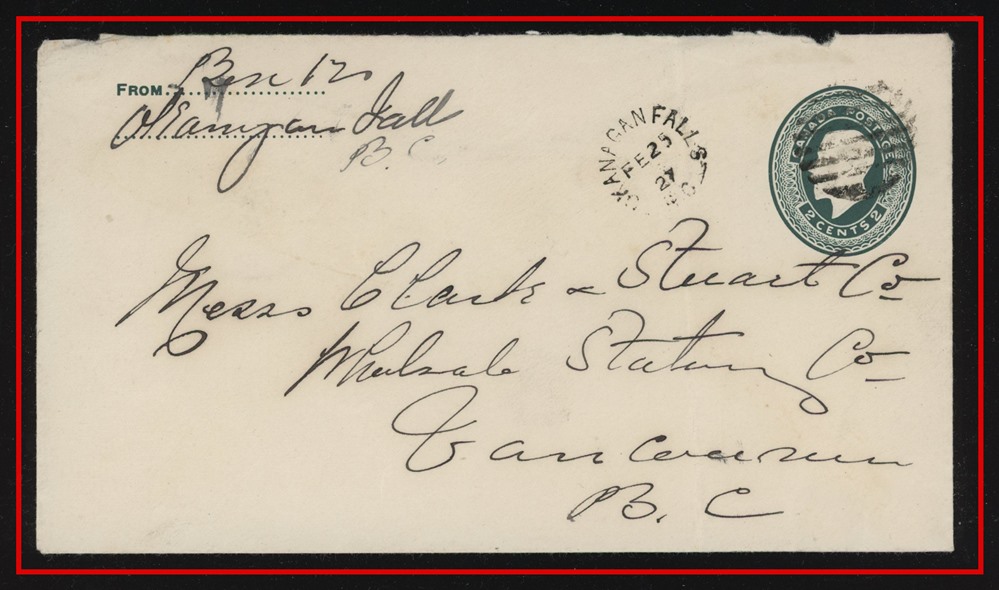 FROM Box 12
Okanagan Fall
B.C.
OKANAGAN FALLS
FE 25
27
B C
CANADA POSTAGE
2 CENTS 2
Messs Clark & Stuart Co
Wholsale Stationry Co
Vancouver
B. C